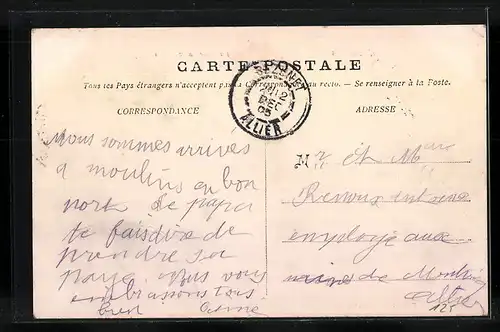 CARTE POSTALE
Tous les Pays étrangers n'acceptent pas la Correspondance au recto. — Se renseigner à la Poste.
CORRESPONDANCE
ADRESSE
BEZENET
12
DEC
05
ALLIER
Nous sommes arrives
a moulins en bon
port le papa
te fais dire de
prendre sa
paye. Nous vous
embrassons tous
bien
Mr et Mme
Renoux
employé aux
mines de
Allier
125